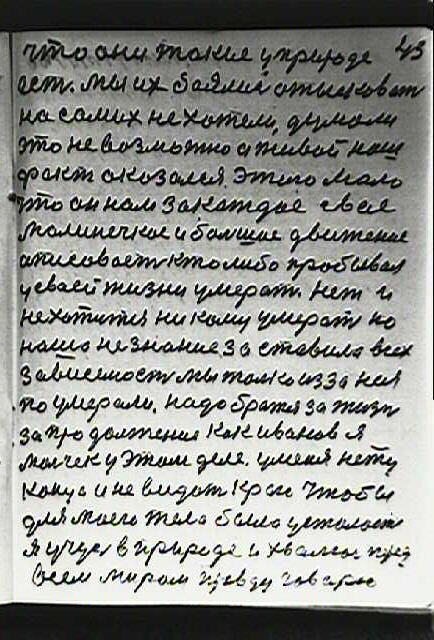 что они такие у природе 43
ест. мы их баялис отисковат
на самих не хотели, думали
это не возможно а живой наш
факт оказался. Этого мало
что он нам за каждае свае
малинечкое и болшое движение
описовает кто либо пробывал
у сваей жизни умерат. нет и
нехотится ни кому умерат но
наша не знание заставила всех
зависемост мы толко из за нея
по умерали. надо братся за жизн
за продолжения как иванов я
молчек у этом деле. у меня нету
конца и не видат края чтобы
для маего тела была усталост
я учус в природе и хвалюс пред
всем миром правду говорю